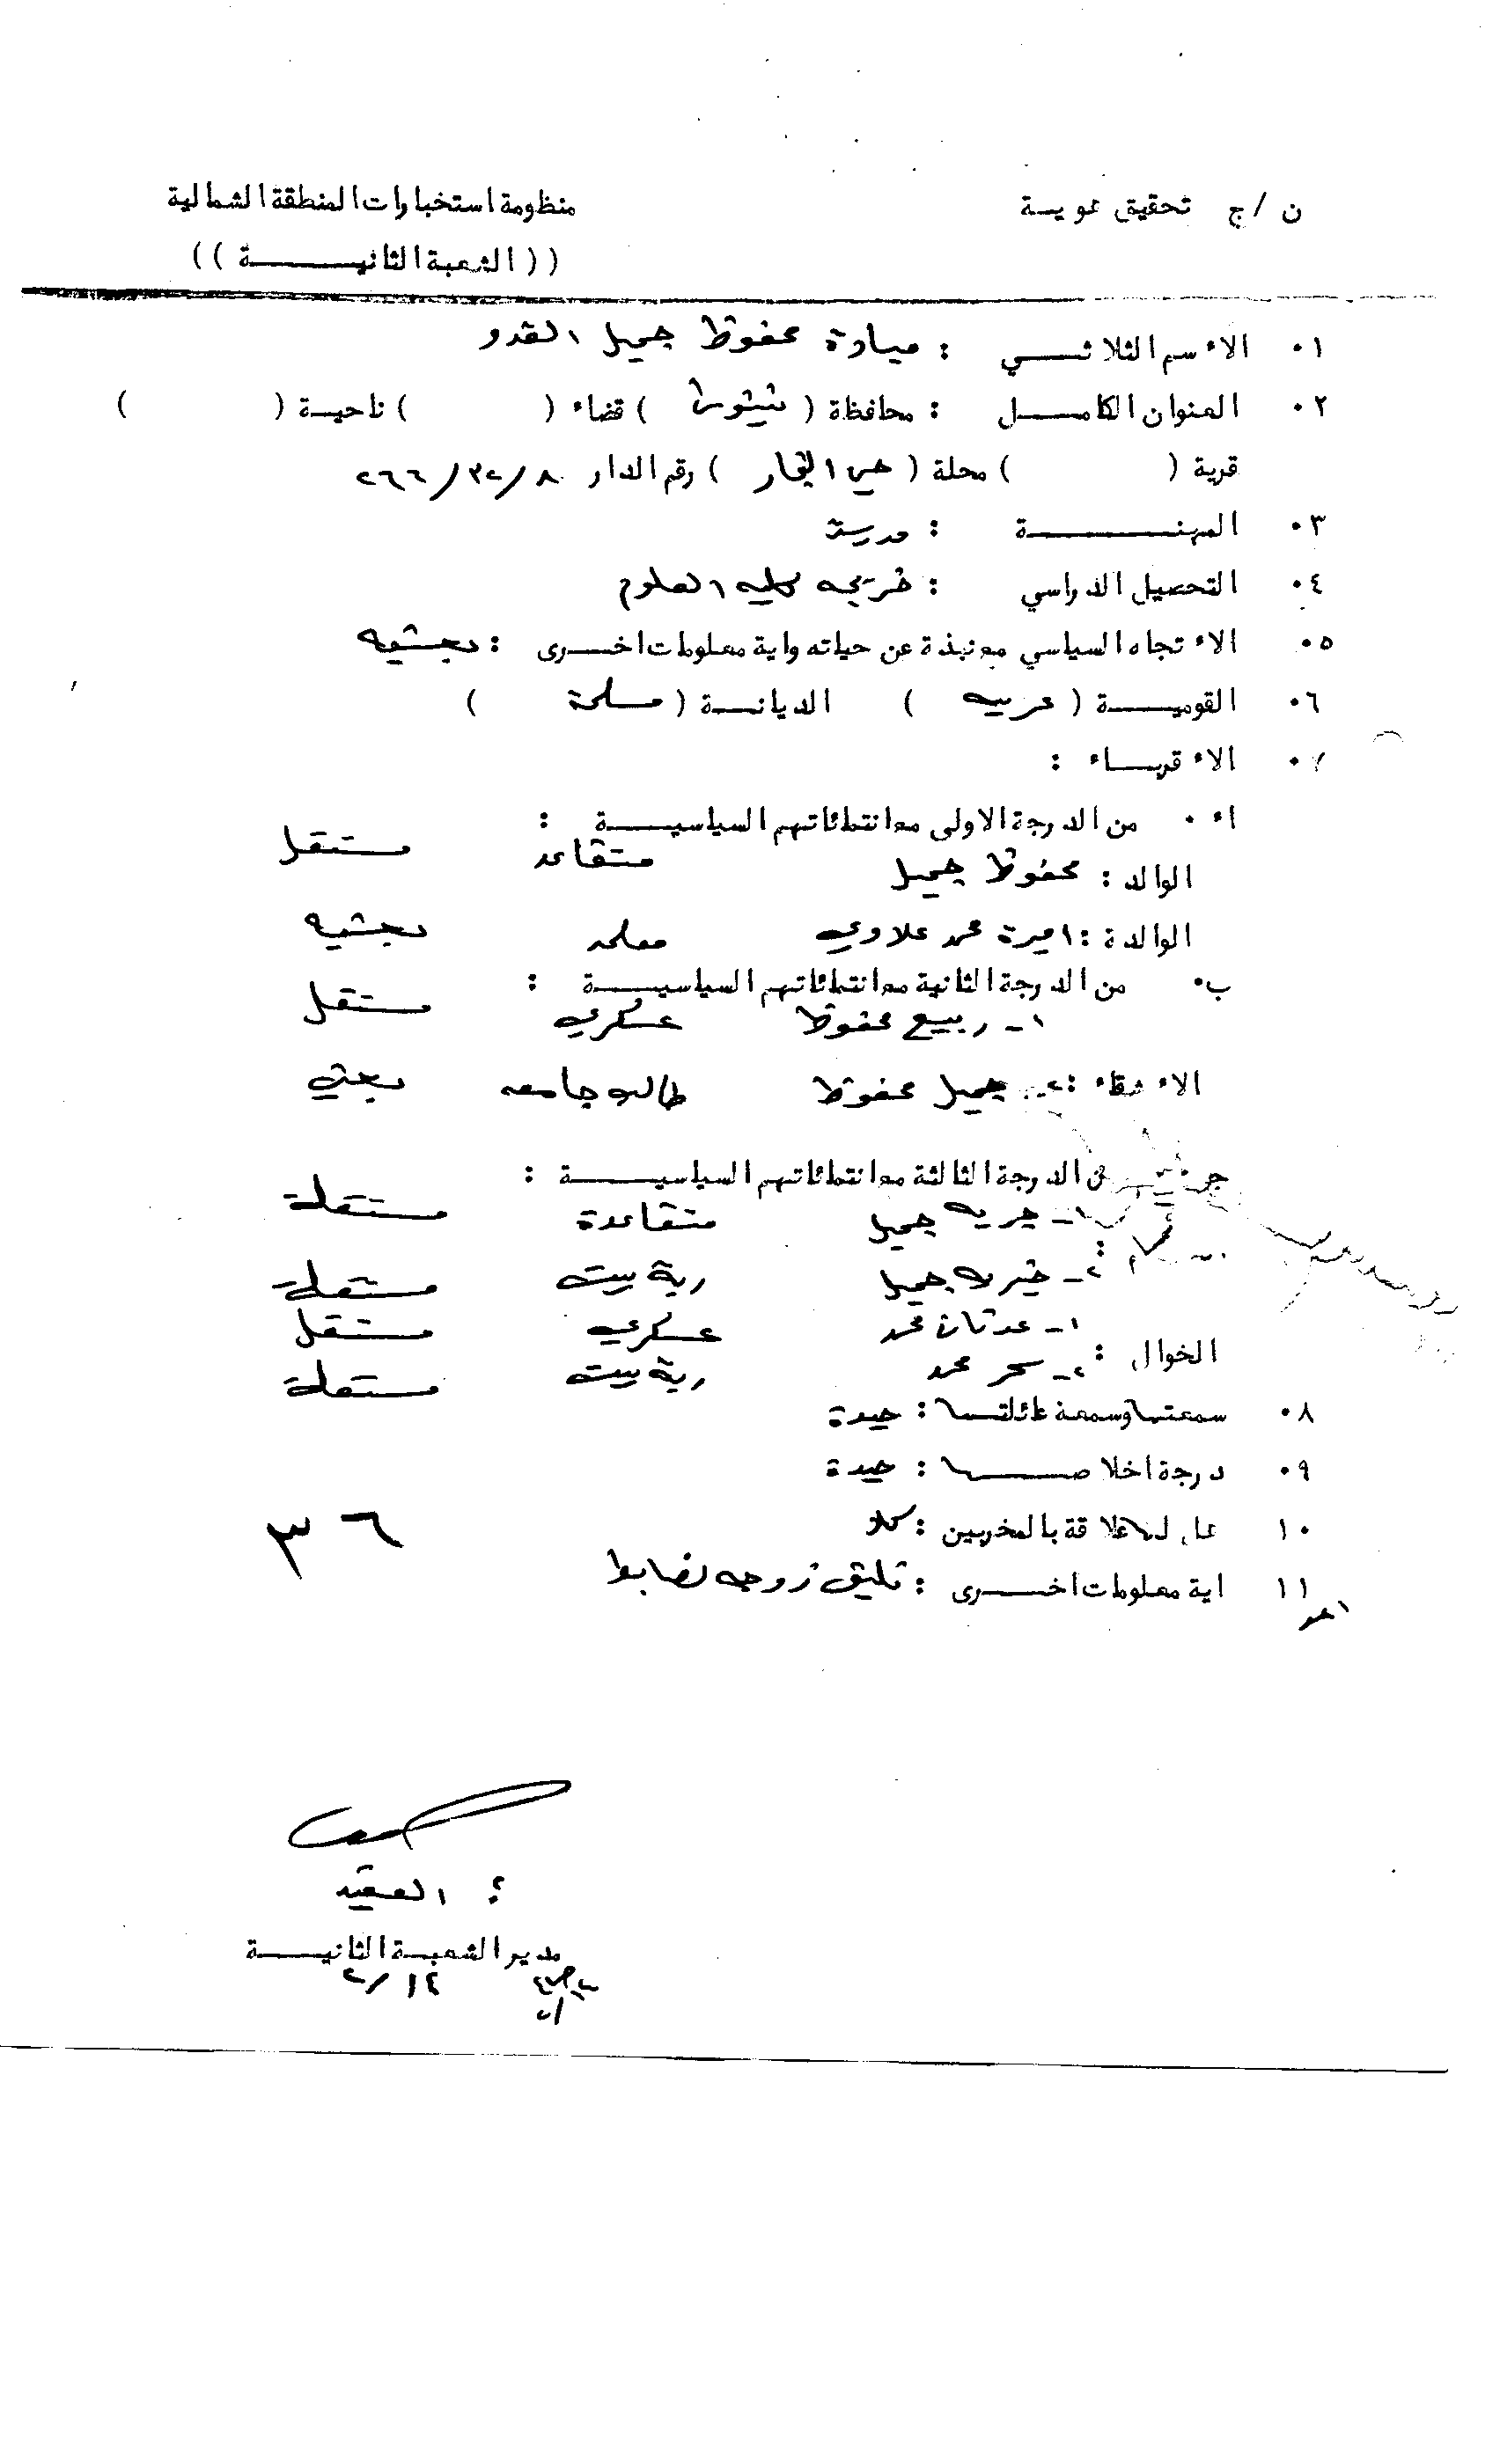 ن / ج تحقيق هويسة منظومة استخبارات المنطقة الشمالية
(( الشعبة الثانيـــــة ))
٠١ الاسم الثلاثـــي : ميادة محفوظ جميل القدو
٠٢ العنوان الكامـــل : محافظة ( نينوى ) قضاء ( ) ناحيـة ( )
قرية ( ) محلة ( حي النجار ) رقم الدار ٢٦٦/٣٢/٨
٠٣ المهنـــــة : مدرسة
٠٤ التحصيل الدراسي : خريجه كليه العلوم
٠٥ الاتجاه السياسي مع نبذة عن حياته واية معلومات اخـــرى : بعثيه
٠٦ القوميـــة ( عربيه ) الديانـــة ( مسلمة )
٠٧ الاقربـــاء :
أ٠ من الدرجة الاولى مع انتمائاتهم السياسيـــة :
الوالد : محفوظ جميل متقاعد مستقل
الوالدة : اميرة محمد علاوي معلمه بعثيه
ب٠ من الدرجة الثانية مع انتمائاتهم السياسيـــة :
١- ربيع محفوظ عسكري مستقل
الاشقاء : ٢- جميل محفوظ طالب جامعه بعثي
ج من الدرجة الثالثة مع انتمائاتهم السياسيـــة :
١- جميل متقاعدة مستقلة
٢- خيريه جميل ربة بيت مستقلة
١- عدنان محمد عسكري مستقل
الخوال : ٢- سحر محمد ربة بيت مستقلة
٠٨ سمعتها وسمعة عائلتهـا : جيدة
٠٩ درجة اخلاصـــها : جيدة
١٠ هل لها علاقة بالمخربين : كلا
٣٦
١١ اية معلومات اخـــرى : تليق زوجه لضابط
العقيد
مدير الشعبـة الثانيـــة
٢/١٤